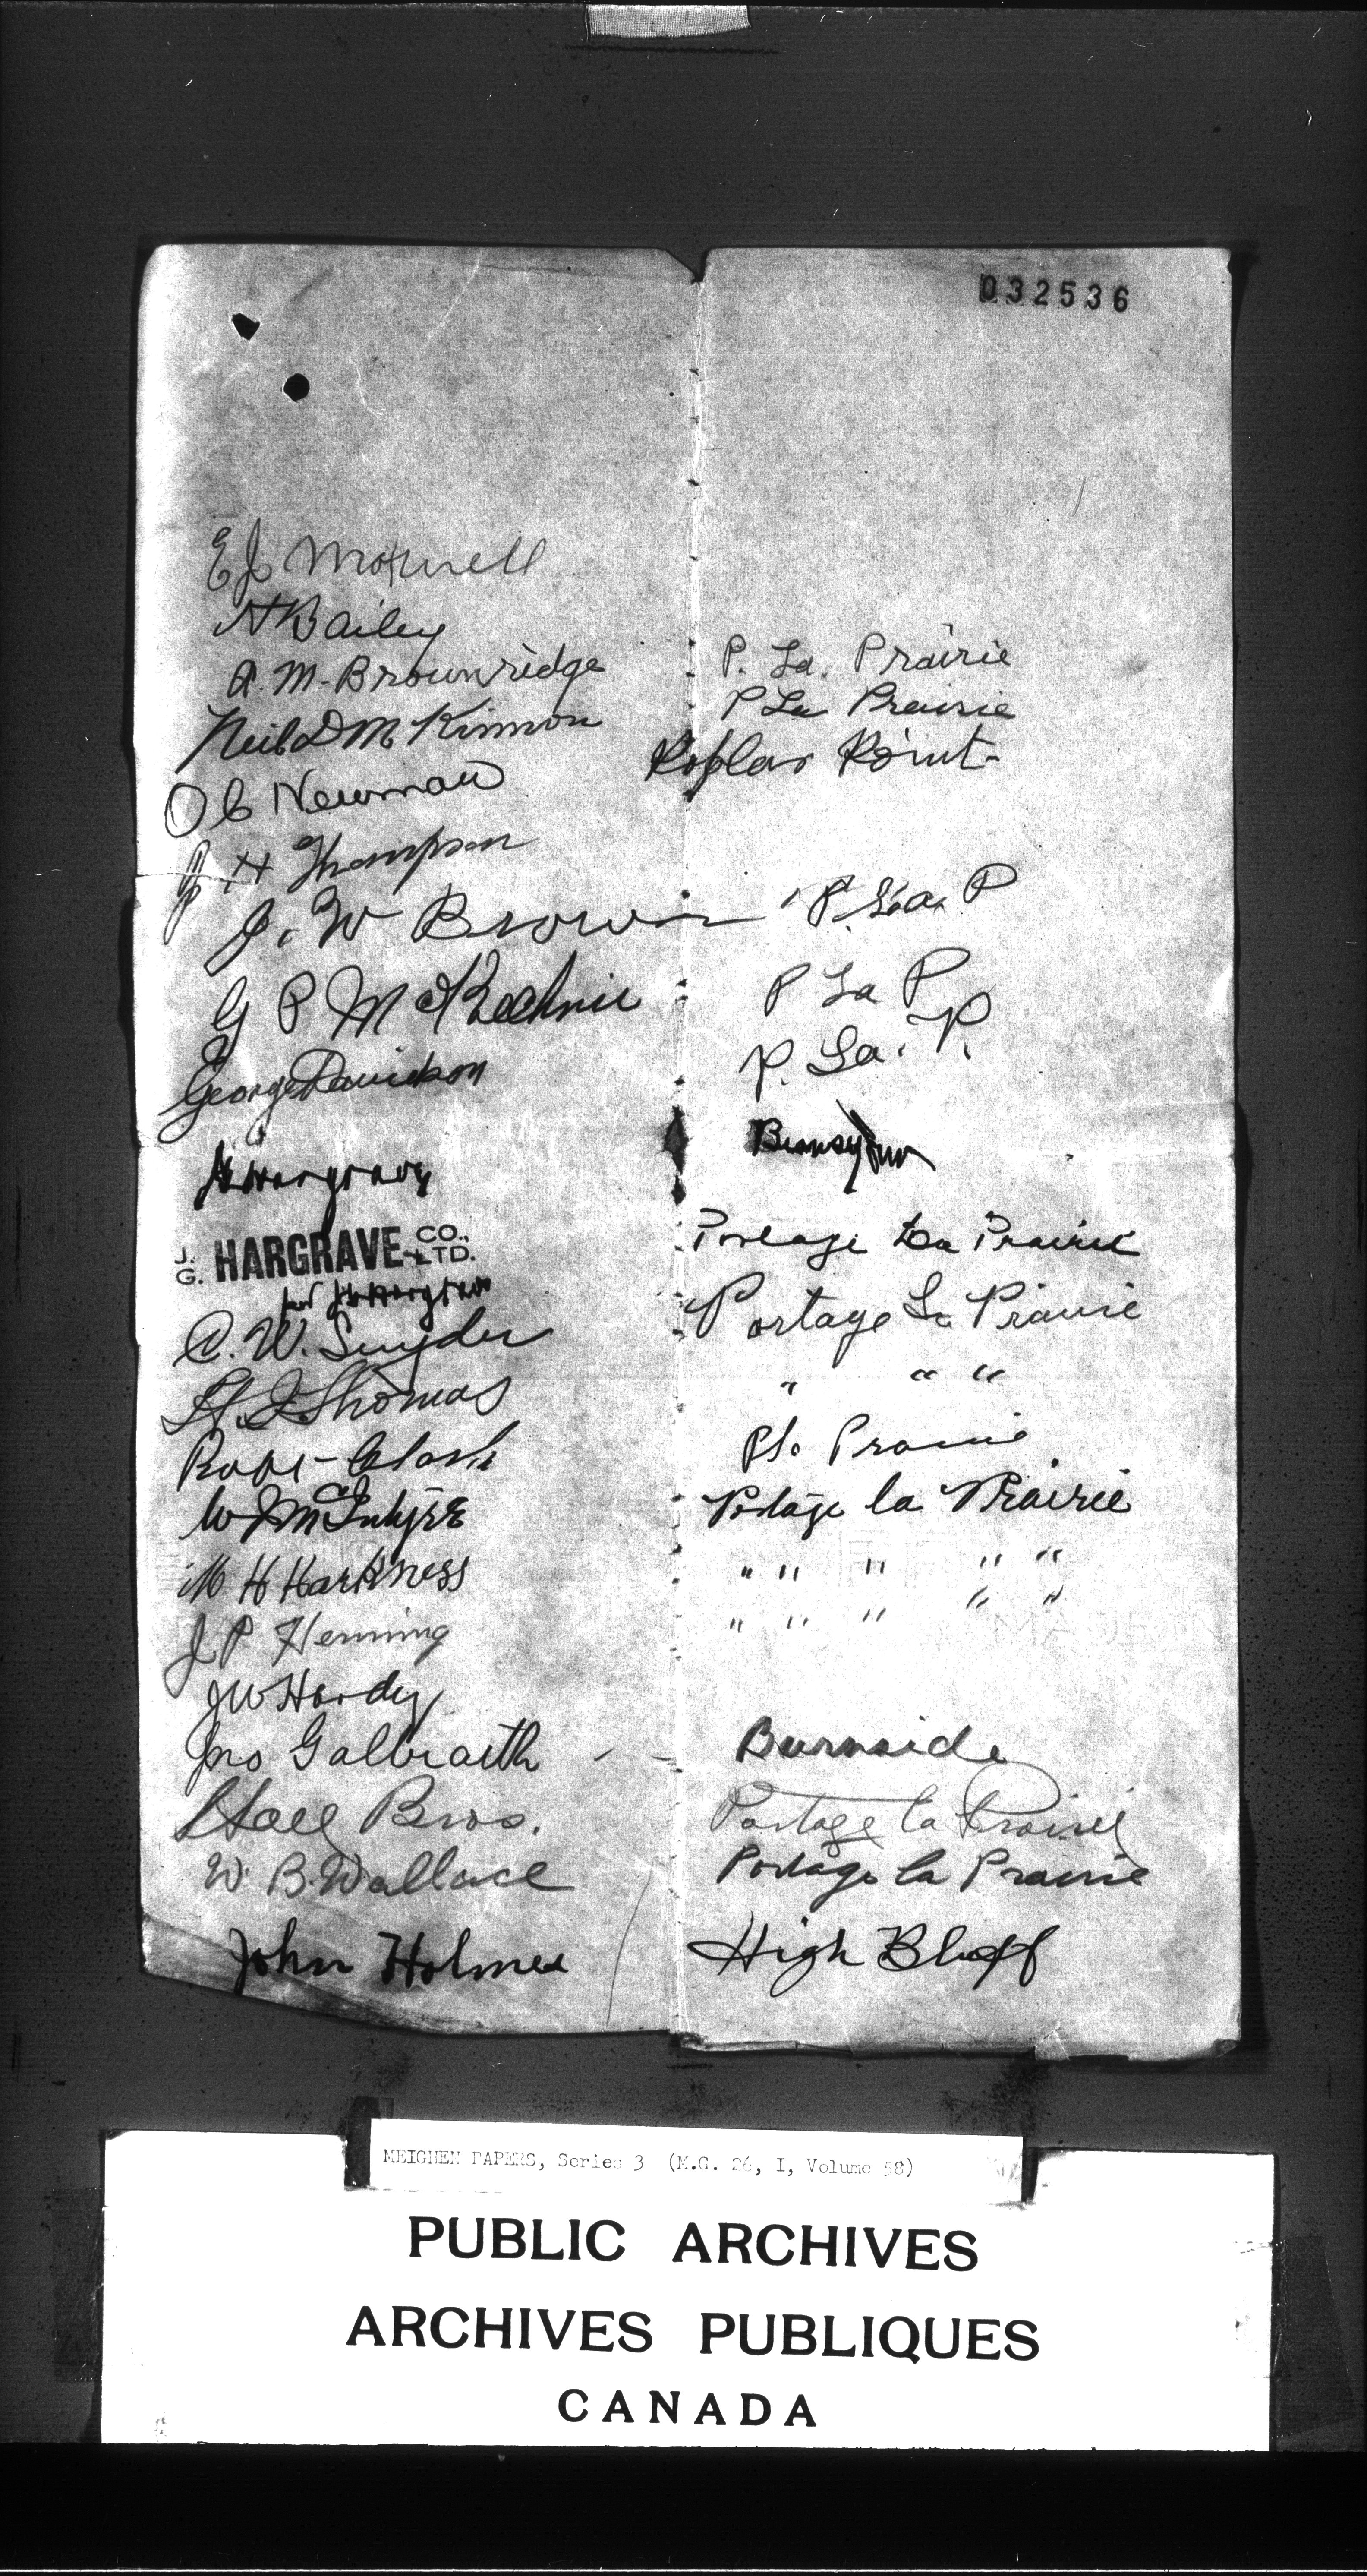 032536
EJ Motwell
H Bailey
A. M. Brownridge P. La. Prairie
Neil D McKinnon P La Prairie
O C Newman Poplar Point
J H Thompson
J. W Brown P. La. P
G P McKechnie P La P
George Davidson P. La. P.
J Hargrave
J. G. HARGRAVE CO., LTD. Portage La Prairie
per J Hargrave
C. W. Snyder Portage La Prairie
H. J. Thomas " " "
Robt Clark Pt. Prairie
W J McIntyre Portage la Prairie
M H Harkness " " " " "
J P Henning " " " " "
JW Hardy
Jno Galbraith - - Burnside
Hall Bros. Portage la Prairie
W. B. Wallace Portage la Prairie
John Holmes High Bluff
MEIGHEN PAPERS, Series 3 (M.G. 26, I, Volume 58)
PUBLIC ARCHIVES
ARCHIVES PUBLIQUES
CANADA